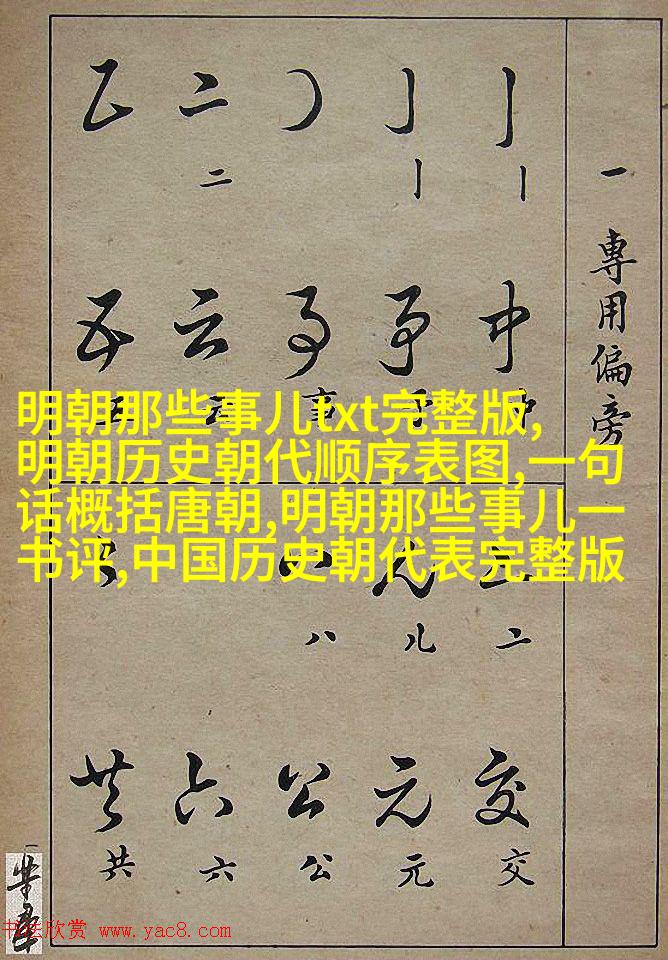 一 專用偏旁
丨 亅
丨 丨
二
二
中 爭 事 云 五
事
明朝那些事儿txt完整版,
明朝历史朝代顺序表图,一句
话概括唐朝,明朝那些事儿一
书评,中国历史朝代表完整版
二 儿 八
交 元 公 六 共
交 元 公 六 共
书法欣赏 www.yac8.com